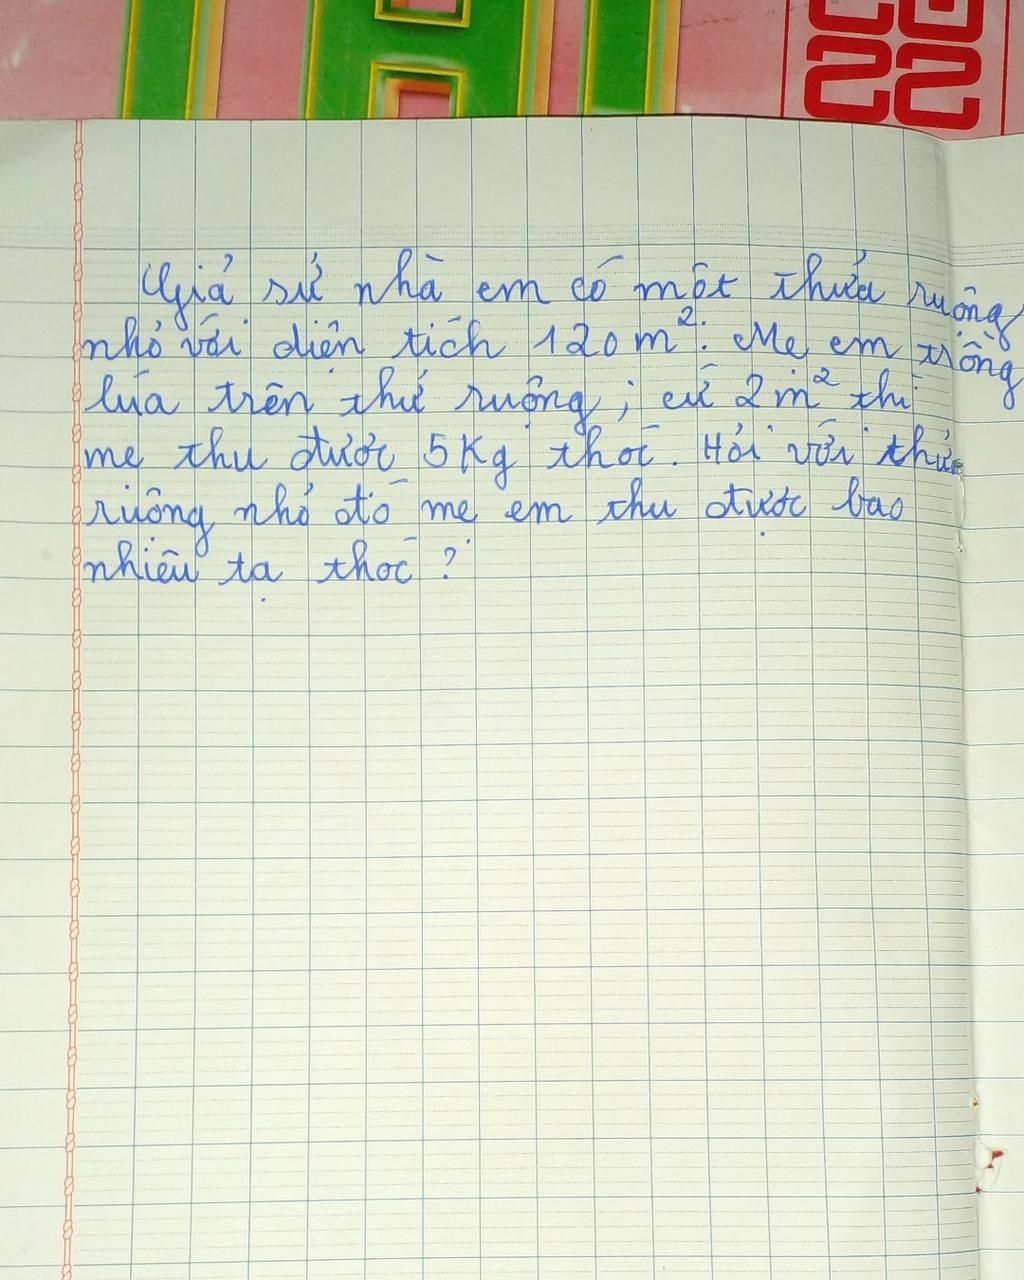 Giả sử nhà em có một thửa ruộng
nhỏ với diện tích 120m². Mẹ em trồng
lúa trên thử ruộng; cứ 2m² thì
mẹ thu được 5Kg thóc. Hỏi với thửa
ruộng nhỏ đó mẹ em thu được bao
nhiêu tạ thóc?